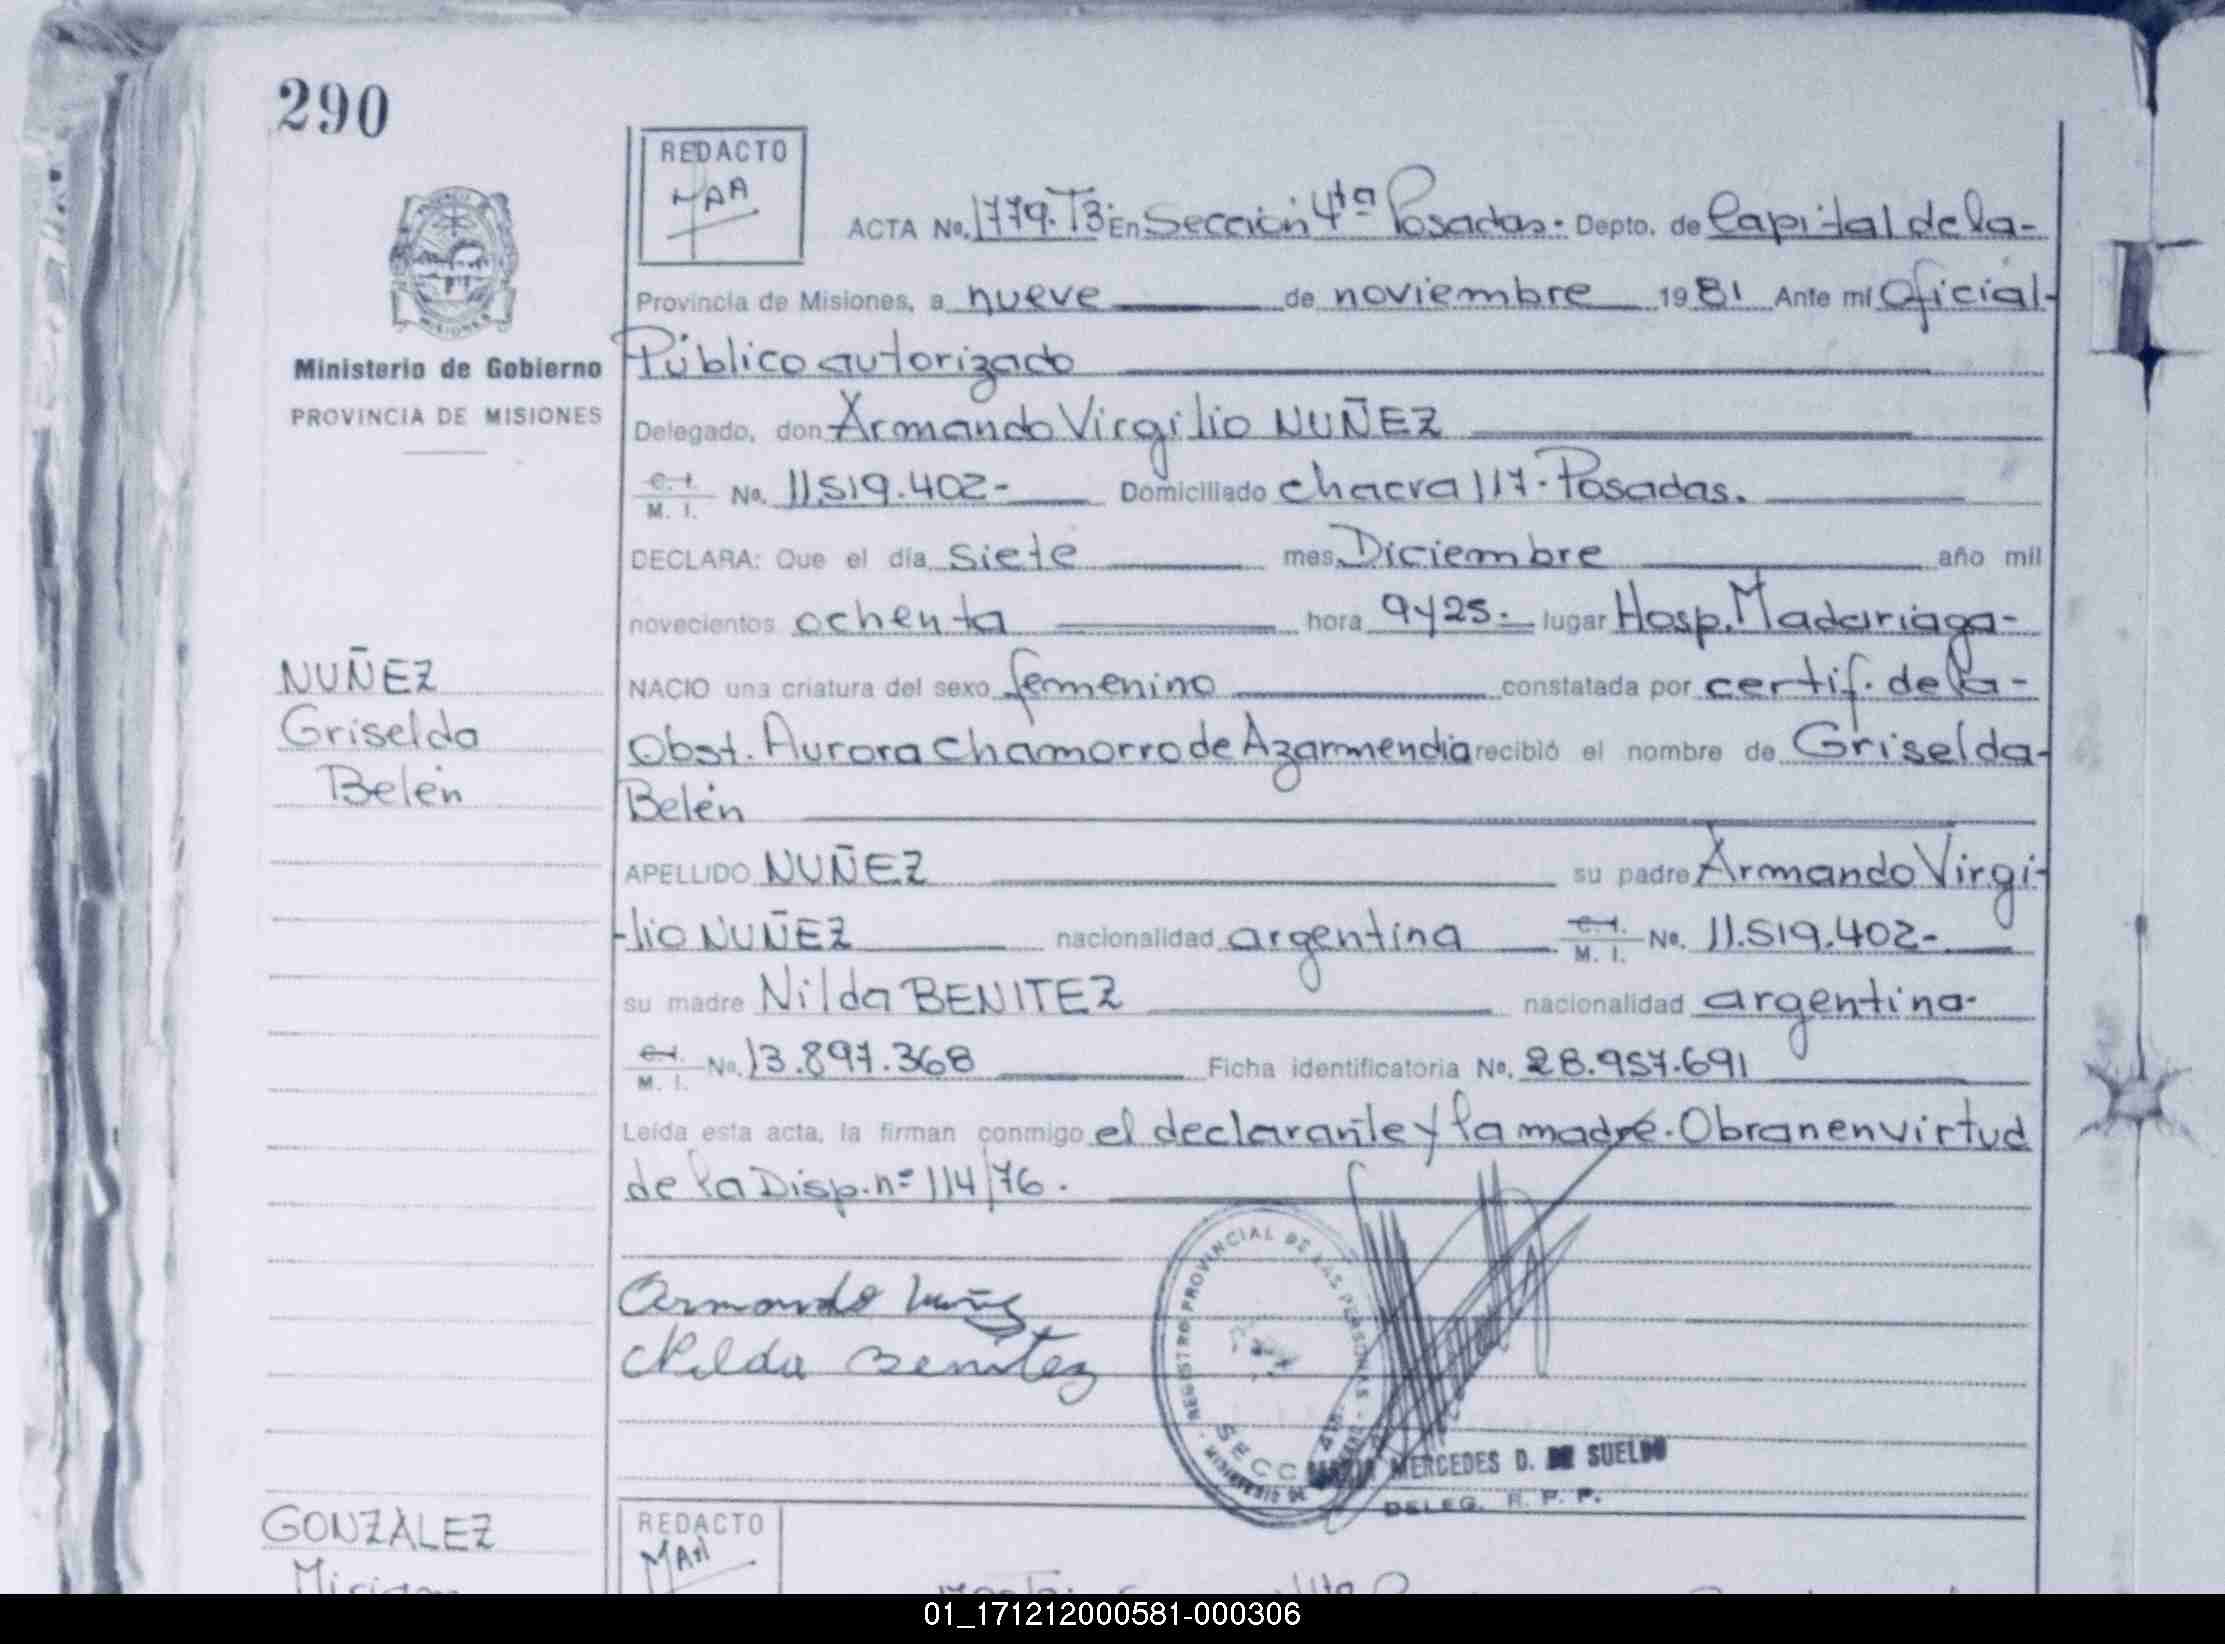 290
REDACTO
MAA
ACTA No. 1779.T3 En Sección 4ta Posadas. Depto. de Capital de la-
Provincia de Misiones, a nueve de noviembre 1981 Ante mí Oficial-
Público autorizado
Ministerio de Gobierno
PROVINCIA DE MISIONES
Delegado, don Armando Virgilio NUÑEZ
C. I.
M. I. No. 11.519.402- Domiciliado chacra 117. Posadas.
DECLARA: Que el día siete mes Diciembre año mil
novecientos ochenta hora 9y25.- lugar Hosp. Madariaga-
NUÑEZ
Griselda
Belén
NACIO una criatura del sexo femenino constatada por certif. de la-
Obst. Aurora Chamorro de Azarmendia recibió el nombre de Griselda-
Belén
APELLIDO NUÑEZ su padre Armando Virgi-
-lio NUÑEZ nacionalidad argentina C.I. M. I. No. 11.519.402-
su madre Nilda BENITEZ nacionalidad argentina-
C.I. M. I. No. 13.897.368 Ficha identificatoria No. 28.957.691
Leída esta acta, la firman conmigo el declarante y la madre. Obran en virtud
de la Disp. nº 114/76.
Armando Nuñez
Nilda Benitez
REGISTRO PROVINCIAL DE LAS PERSONAS
MINISTERIO DE
MERCEDES D. DE SUELDO
DELEG. R. P. P.
GONZALEZ
Miriam
REDACTO
MAA
01_171212000581-000306